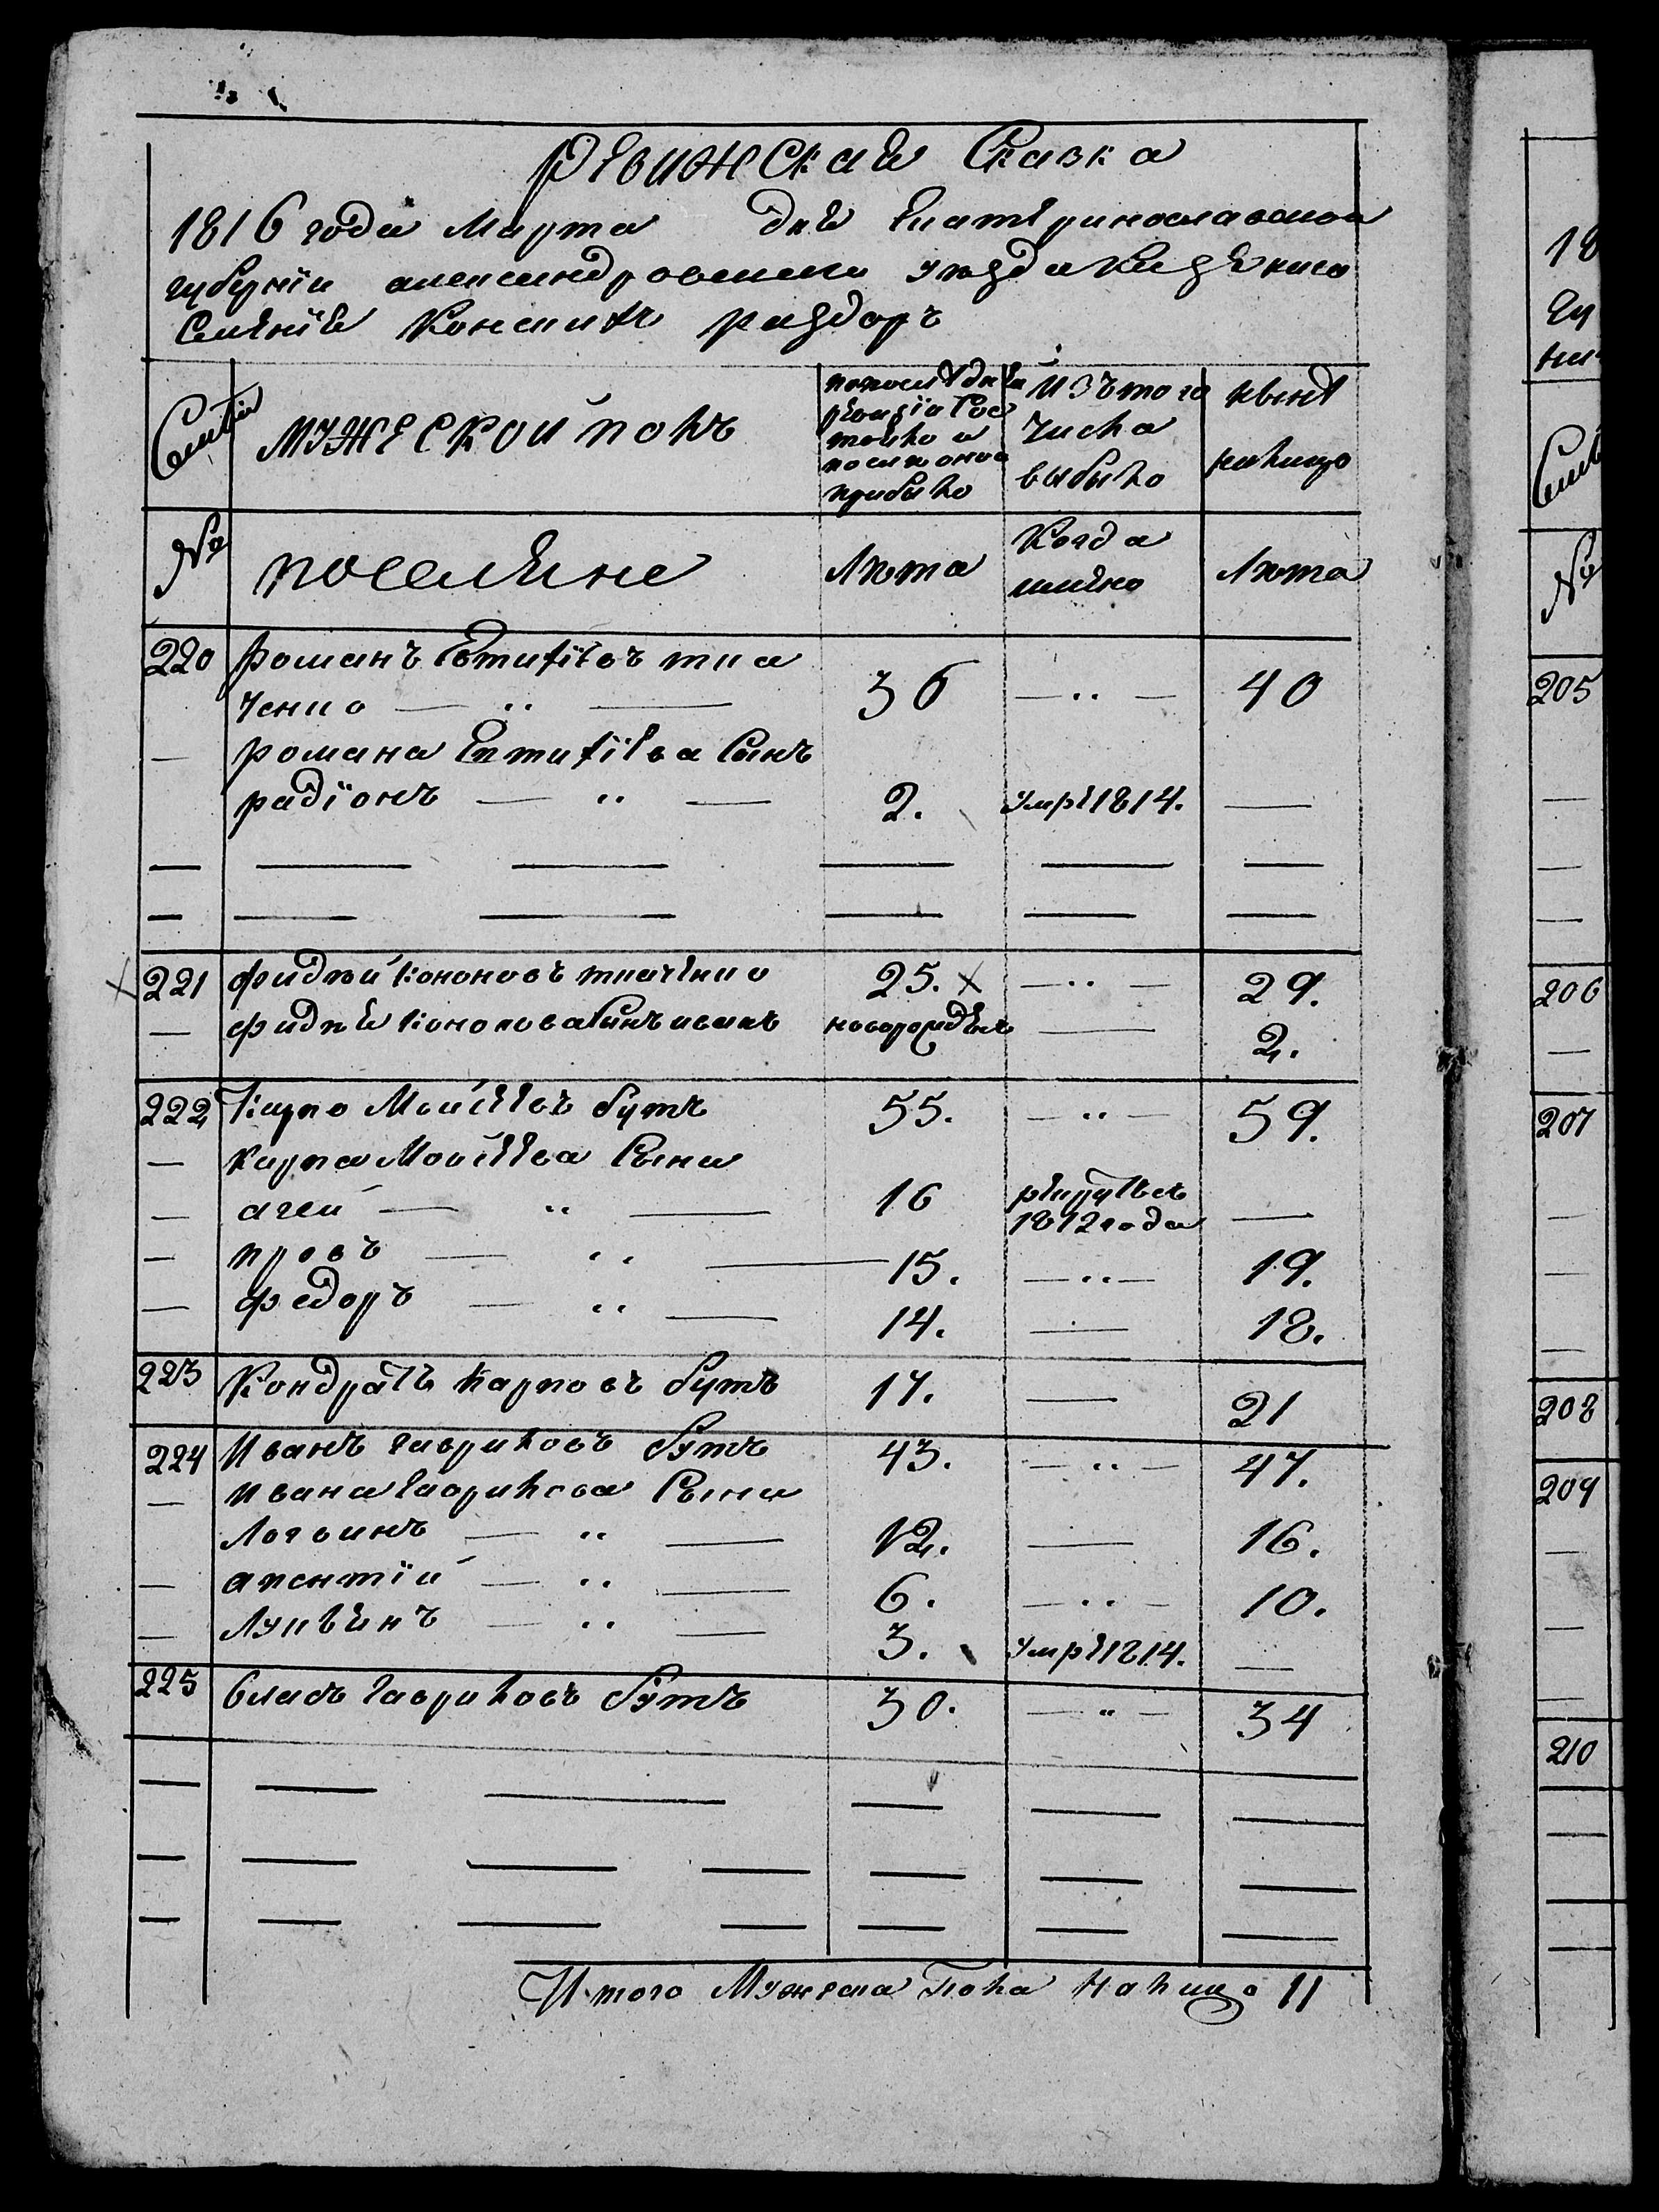 Ревижская Сказка
1816 года Марта дня Екатеринославской
губернїи александровскаго уезда казенаго
Селенїя Конских раздоръ
Семьи
мужескои полъ
попоследней
ревизїи Сос
тояло и
после оной
прибыло
Изътого
числа
выбыло
ныне
налицо
№
поселяне
лета
Когда
имяно
лета
220 романъ Евтифїевъ тка
ченко — " — 36 — " — 40
— романа Евтифїева Сынъ
радїонъ — " — 2. умре 1814. —
221 фадей кононовъ ткаченко 25. — " — 29.
— фадея кононова Сынъ исакъ новорожденъ — 2.
222 Карпо Моисеевъ бутъ 55. — " — 59.
— карпа Моисеева Сыны
— агей — " — 16 рекрутъ съ
1812 года —
— провъ — " — 15. — " — 19.
— федоръ — " — 14. — 18.
223 Кондратъ карповъ бутъ 17. — 21
224 Иванъ гавриловъ бутъ 43. — " — 47.
— ивана гаврилова Сыны
логвинъ — " — 12. — 16.
— арентїй — " — 6. — " — 10.
— лукьянъ — " — 3. умре 1814. —
225 власъ гавриловъ бутъ 30. — " — 34
Итого Мужеска Пола Налицо 11
18
Ек
205
206
207
208
209
210